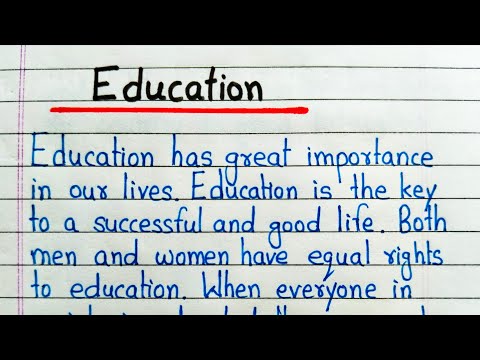 Education
Education has great importance
in our lives. Education is the key
to a successful and good life. Both
men and women have equal rights
to education. When everyone in